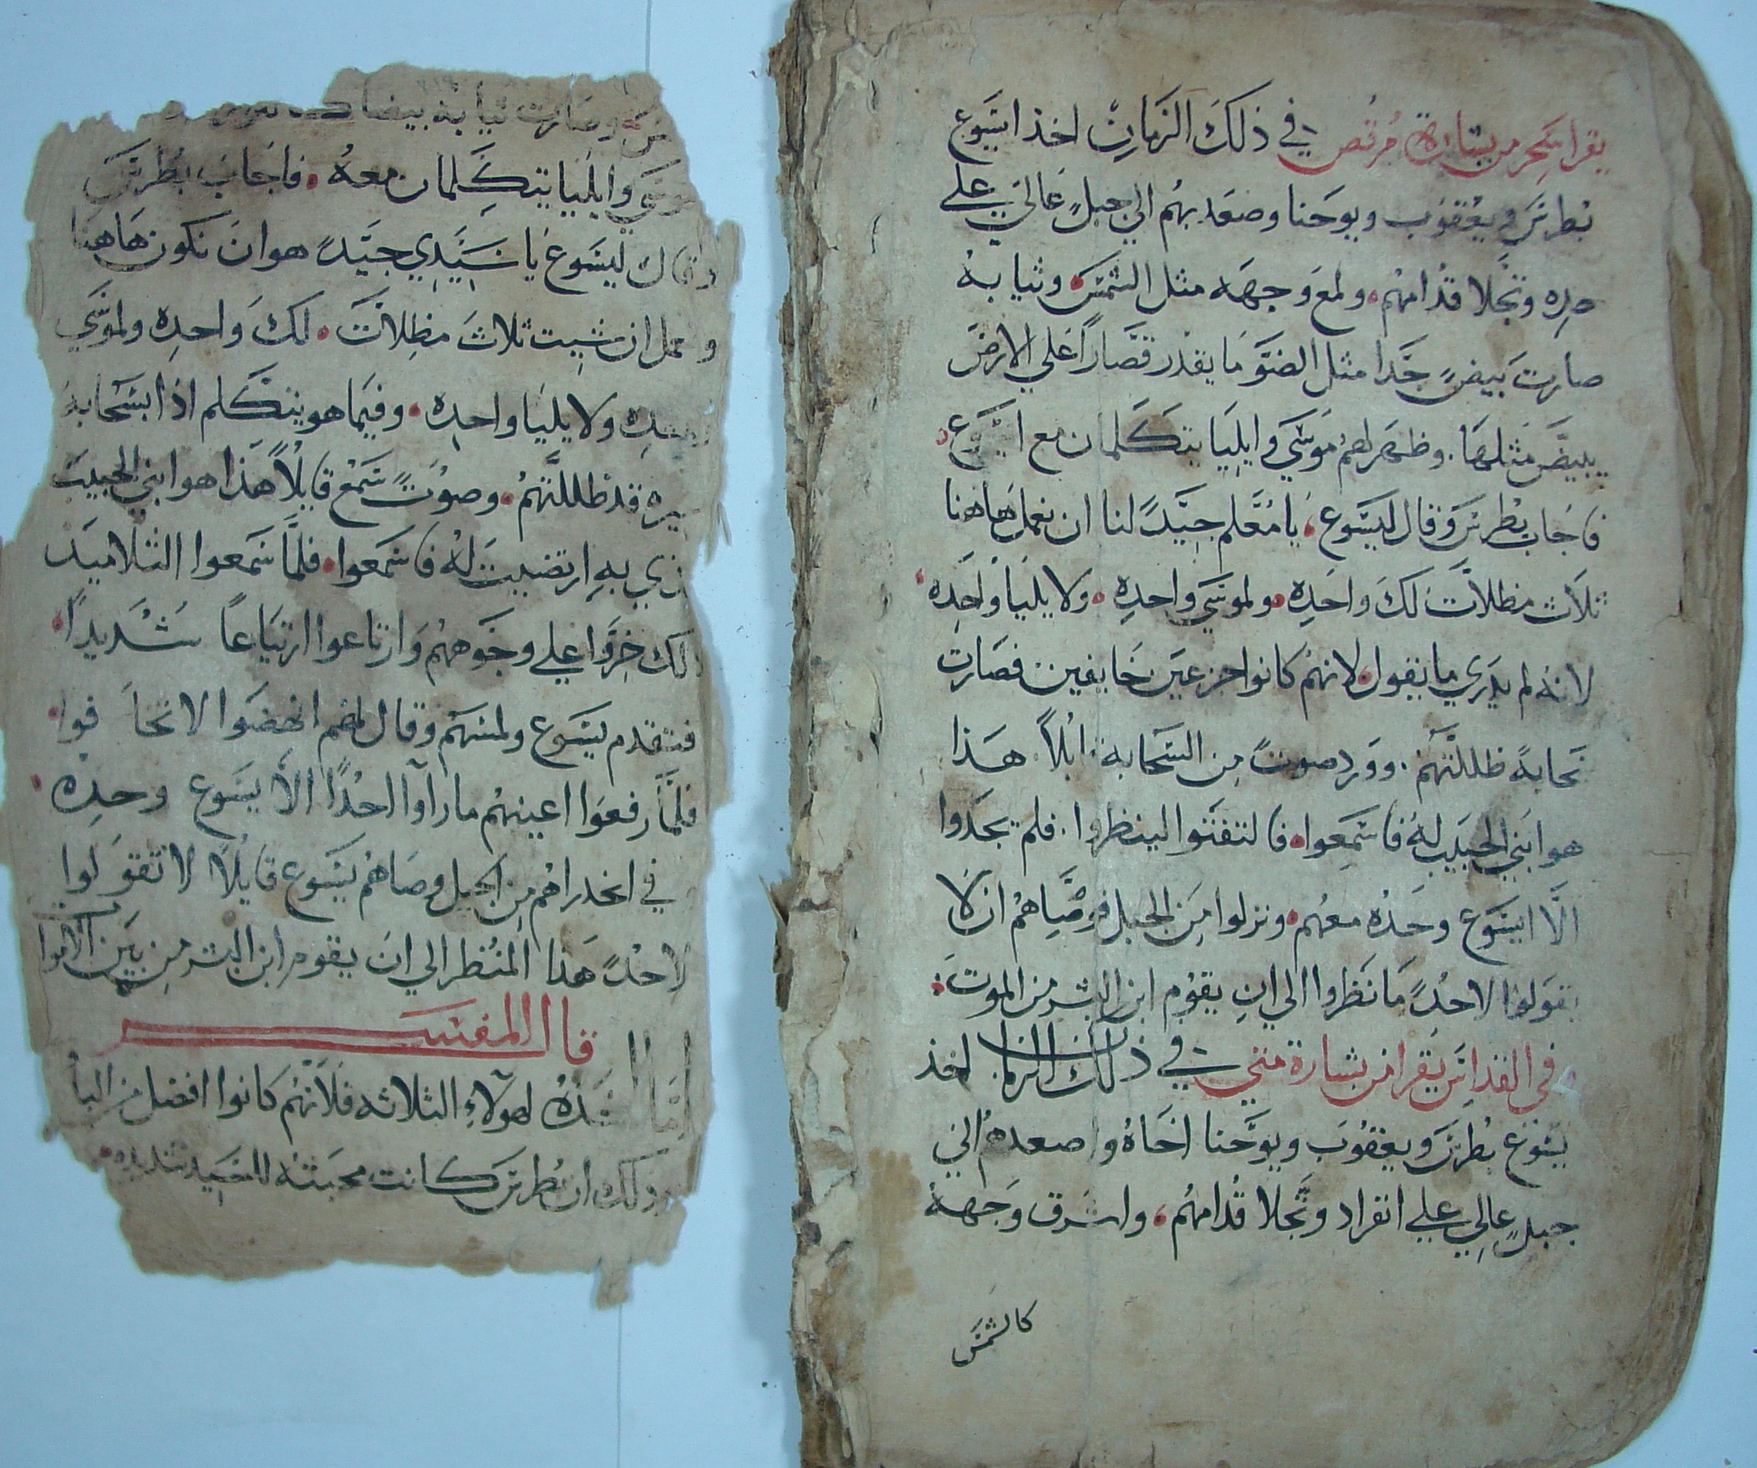 يقرا سحر من بشارة مرقص في ذلك الزمان اخذ ايسوع
بطرس ويعقوب ويوحنا وصعد بهم الي جبلٍ عالي علي
حدِه وتجلا قدامهم ولمع وجهه مثل الشمس وثيابه
صارت بيضٍ جَدا مثل الضوَ ما يقدر قصَّاراً علي الارض
يبيضَ مثلها. وظهر لهم موسَي وايليا يتكلمان مع ايسوع
فاجاب بطرس وقال ليسوع يا مُعلم جيدً لنا ان نعمل هاهنا
ثلاث مظلات لك واحدِه ولموسَي واحدِه ولايليا واحِده
لانه لم يدري ما يقول لانهم كانوا جزعين خايفين فصارت
سحابة ظللتهم. وورد صوتً من السحابة. ايلاً هذا
هوابني الحبيب لهُ فاسمِعوا فالتفتوا لينظروا. فلم يجدوا
الَّا ايسوع وحدُه معهم ونزلوا من الجبل فوصَّاهم ان لا
يقولوا لاحدً ما نظروا الي ان يقوم ابن البشر من الموت
في القداس يقرا من بشارة متي في ذلك الزمان اخذ
يسوع بطرس ويعقوب ويوحنا اخاهُ واصعدهم الي
جبلٍ عالي علي انفراد وتجلا قدامهم، واشرق وَجهه
كالشمس
وصارت ثيابه بيضا
موسي وايليا يتكلمان معهُ فاجاب بطرس
وقال ليسوع يا سيدي جيدً هو ان نكون هاهنا
وعمل ان شيت ثلاث مظلات لك واحدِه ولموسَي
واحدِه ولايليا واحدِه وفيما هو يتكلم اذا بسحابة
نيره قد ظللتهم وصوتً سمع قايلاً هذا هو ابني الحبيب
الذي به ارتضيت لهُ فاسمعوا فلما سمعوا التلاميد
ذلك خروا علي وجوههم وارتاعوا ارتياعاً شديداً
فتقدم يسوع ولمسهم وقال لهم انهضوا لا تخافوا
فلما رفعوا اعينهم ما راوا احدًا الا يسوع وحدِه
في انحدراهم من الجبل وصاهم يسوع قايلاً لا تقولوا
لاحدً هذا المنظر الي ان يقوم ابن البشر من بين الاموا
قال المفسر
اما اخذهُ لهولاءِ الثلاثه فلانهم كانوا افضل من البا
وذلك ان بطرس كانت محبته للسيد شديده